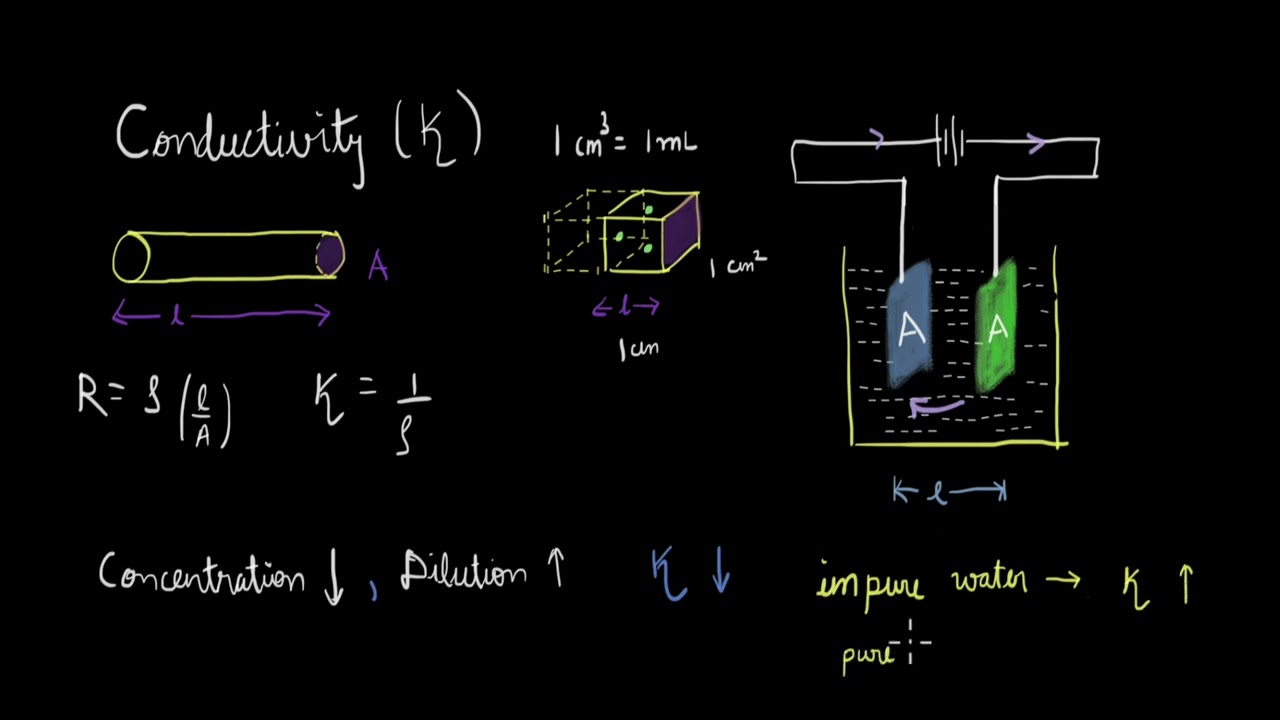 Conductivity (K)
1 cm³ = 1 mL
A
l
1 cm²
l
1 cm
R = ρ (l/A)
K = 1/ρ
A
A
l
Concentration ↓ , Dilution ↑ K ↓
impure water → K ↑
pure